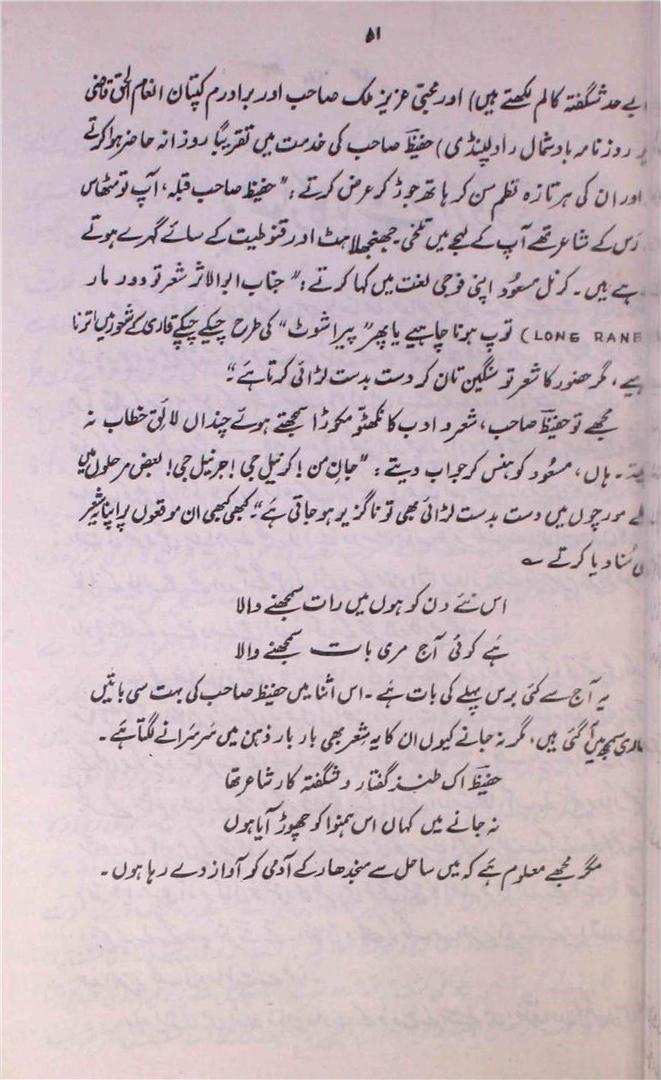 ۵۱
(بے حد شگفتہ کالم لکھتے ہیں) اور محبّی عزیز ملک صاحب اور برادرم کپتان انعام الحق قاضی
روزنامہ بادِ شمال راولپنڈی) حفیظؔ صاحب کی خدمت میں تقریباً روزانہ حاضر ہوا کرتے
اور ان کی ہر تازہ نظم سن کر ہاتھ جوڑ کر عرض کرتے: "حفیظ صاحب قبلہ، آپ تو مٹھاس
رَس کے شاعر تھے آپ کے لہجے میں تلخی جھنجھلاہٹ اور قنوطیت کے سائے گہرے ہوتے
ہے ہیں۔ کرنل مسعُود اپنی فوجی لغت میں کہا کرتے: "جناب ابوالاثر شعر تو دور مار
(LONG RANG توپ ہونا چاہیے یا پھر "پیراشوٹ" کی طرح چپکے چپکے قاری کے شعور میں اترنا
ہیے، مگر حضور کا شعر تو سنگین تان کر دست بدست لڑائی کرتا ہے"۔
مجھے تو حفیظؔ صاحب، شعر و ادب کا نکھٹّو مکوڑا سمجھتے ہوئے چنداں لائقِ خطاب نہ
۔ ہاں، مسعُود کو ہنس کر جواب دیتے: "جانِ من! کرنیل جی! جرنیل جی! بعض مرحلوں میں
مورچوں میں دست بدست لڑائی بھی تو ناگزیر ہو جاتی ہے"۔ کبھی کبھی ان موقعوں پر اپنا یہ شعر
سُنا دیا کرتے ؎
اس نئے دن کو ہوں میں رات سمجھنے والا
ہے کوئی آج مری بات سمجھنے والا
یہ آج سے کئی برس پہلے کی بات ہے۔ اس اثنا میں حفیظ صاحب کی بہت سی باتیں
ہماری سمجھ میں آ گئی ہیں، مگر نہ جانے کیوں ان کا یہ شعر بھی بار بار ذہن میں سرسرانے لگتا ہے۔
حفیظؔ اک طنز گفتار و شگفتہ کار شاعر تھا
نہ جانے میں کہاں اس ہمنوا کو چھوڑ آیا ہوں
مگر مجھے معلوم ہے کہ میں ساحل سے منجدھار کے آدمی کو آواز دے رہا ہوں۔